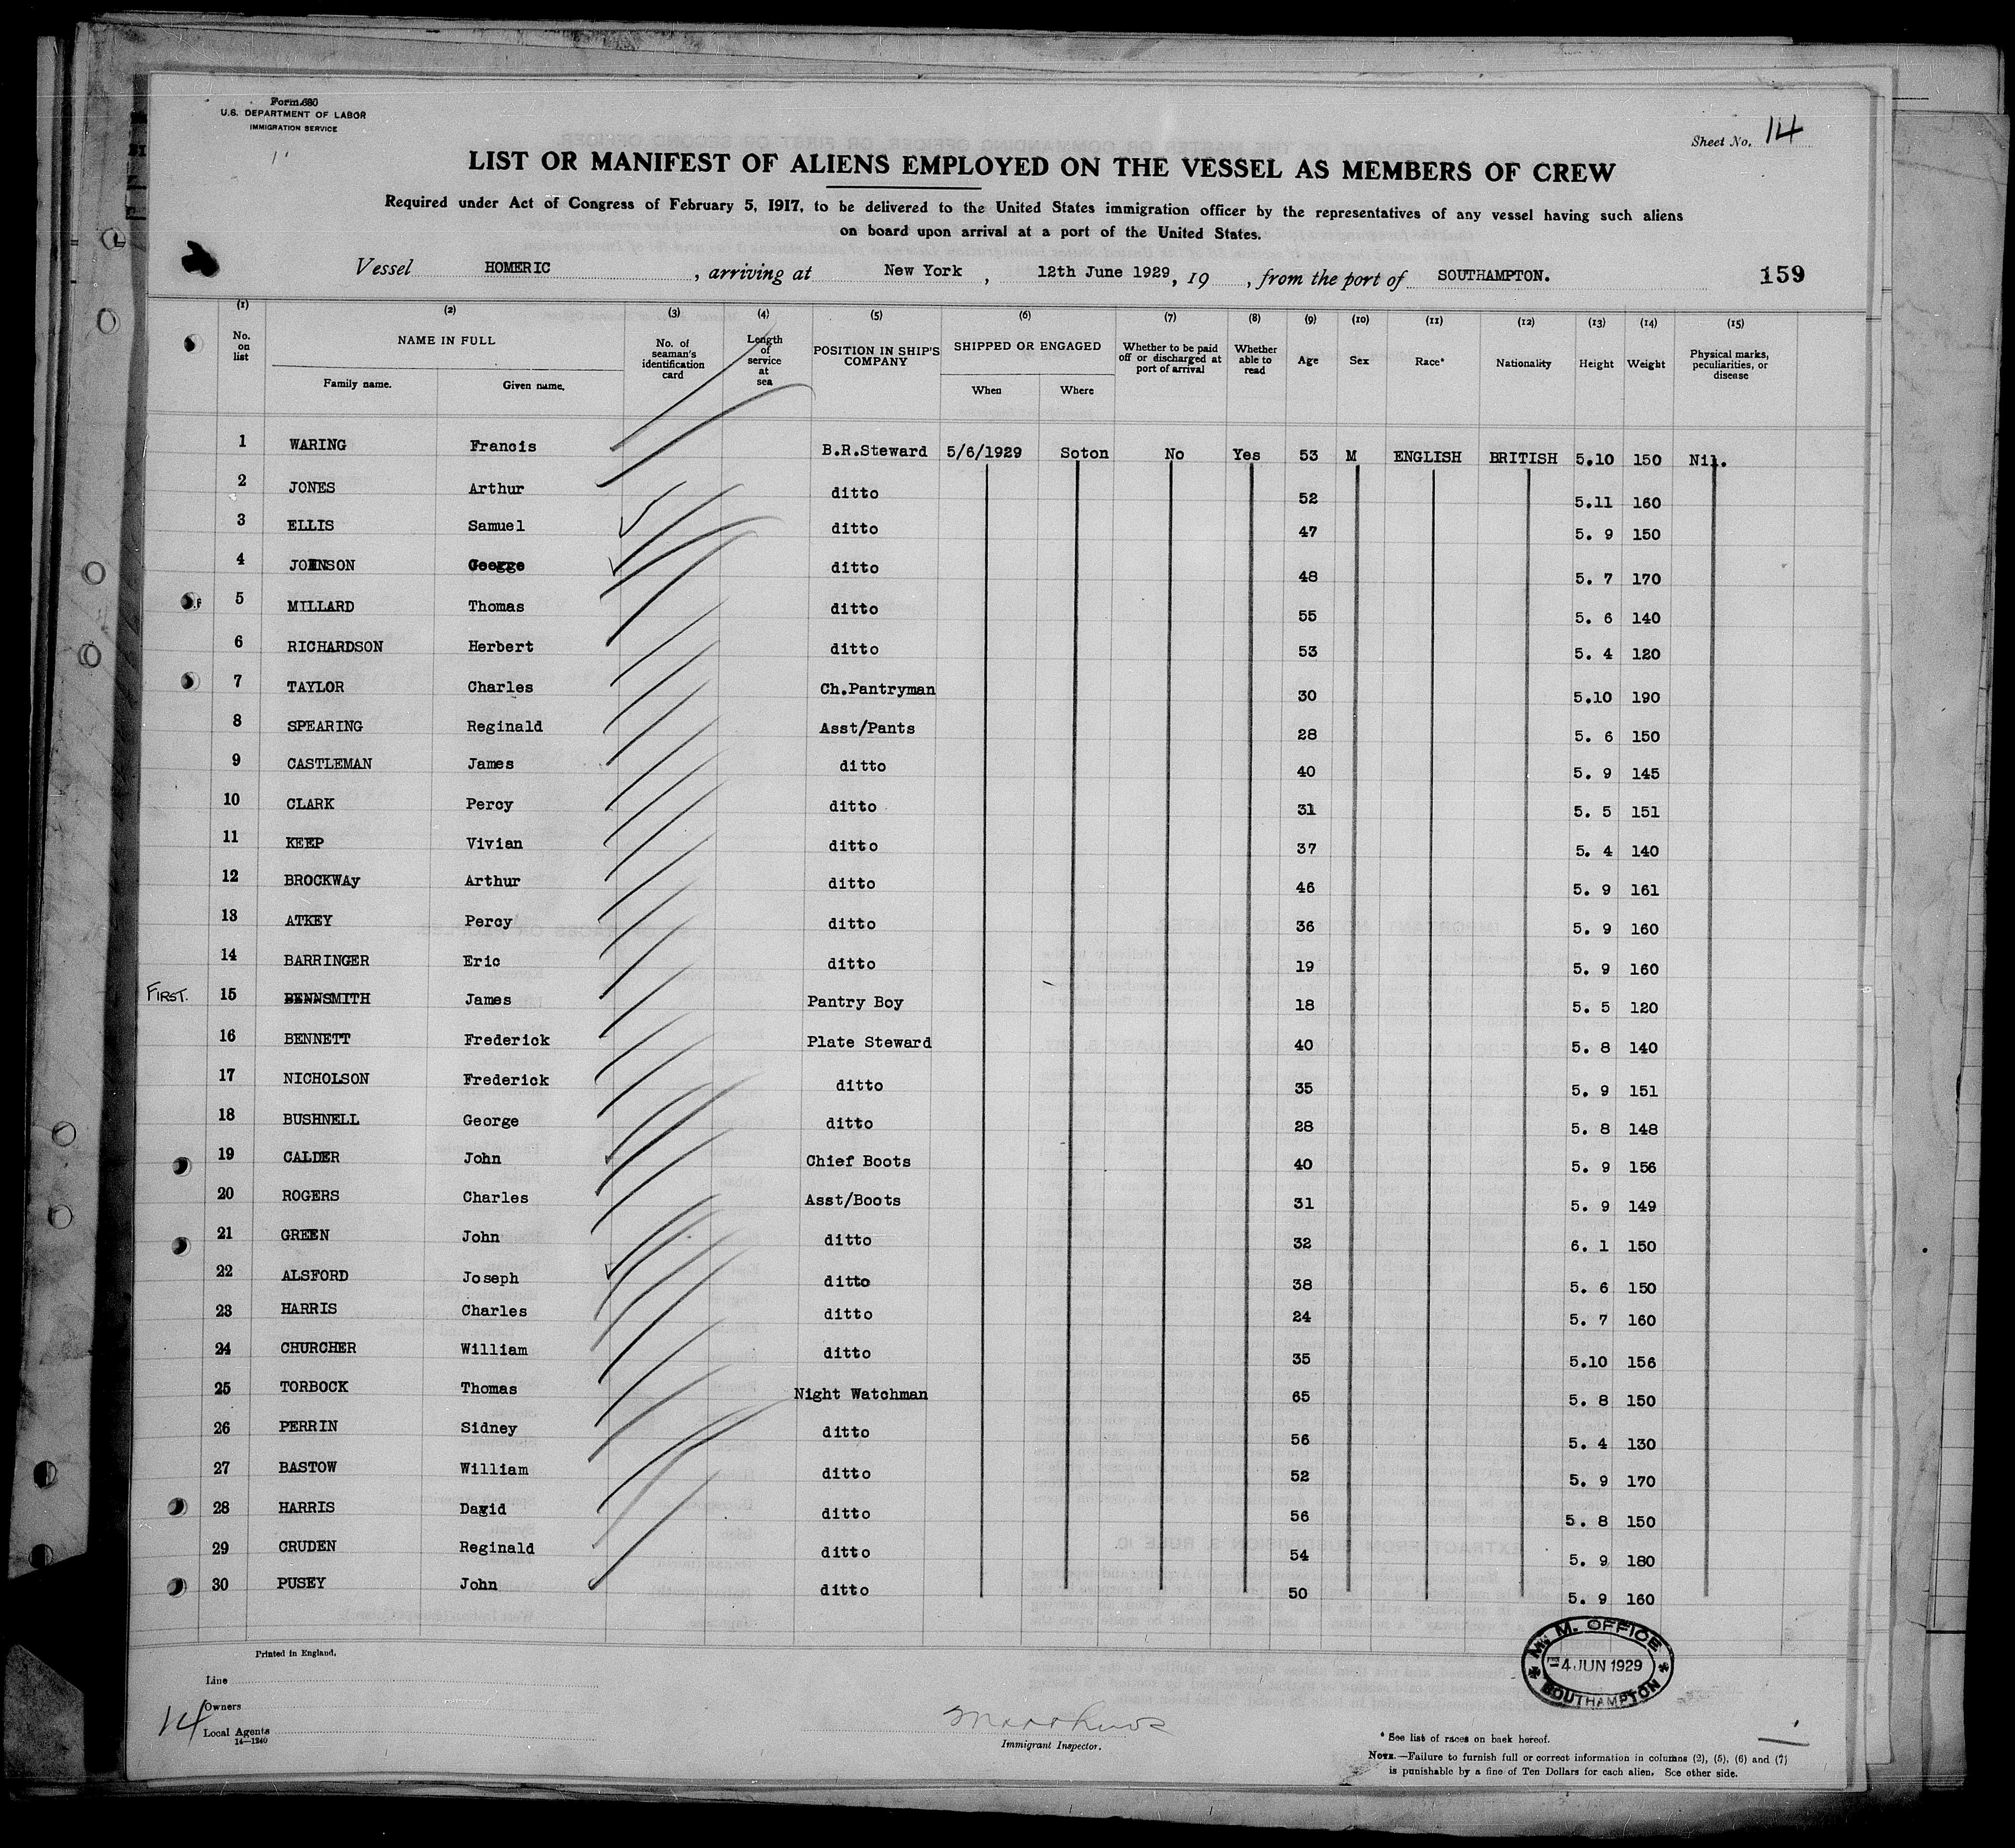 Form 680
U.S. DEPARTMENT OF LABOR
IMMIGRATION SERVICE
Sheet No. 14
LIST OR MANIFEST OF ALIENS EMPLOYED ON THE VESSEL AS MEMBERS OF CREW
Required under Act of Congress of February 5, 1917, to be delivered to the United States immigration officer by the representatives of any vessel having such aliens
on board upon arrival at a port of the United States.
Vessel HOMERIC, arriving at New York, 12th June 1929, 19 , from the port of SOUTHAMPTON. 159
(1) (2) (3) (4) (5) (6) (7) (8) (9) (10) (11) (12) (13) (14) (15)
No. on list NAME IN FULL Family name. Given name. No. of seaman's identification card Length of service at sea POSITION IN SHIP'S COMPANY SHIPPED OR ENGAGED When Where Whether to be paid off or discharged at port of arrival Whether able to read Age Sex Race* Nationality Height Weight Physical marks, peculiarities, or disease
1 WARING Francis B.R.Steward 5/6/1929 Soton No Yes 53 M ENGLISH BRITISH 5.10 150 Nil.
2 JONES Arthur ditto 52 5.11 160
3 ELLIS Samuel ditto 47 5. 9 150
4 JOHNSON George ditto 48 5. 7 170
5 MILLARD Thomas ditto 55 5. 6 140
6 RICHARDSON Herbert ditto 53 5. 4 120
7 TAYLOR Charles Ch.Pantryman 30 5.10 190
8 SPEARING Reginald Asst/Pants 28 5. 6 150
9 CASTLEMAN James ditto 40 5. 9 145
10 CLARK Percy ditto 31 5. 5 151
11 KEEP Vivian ditto 37 5. 4 140
12 BROCKWAy Arthur ditto 46 5. 9 161
13 ATKEY Percy ditto 36 5. 9 160
14 BARRINGER Eric ditto 19 5. 9 160
FIRST. 15 BENNSMITH James Pantry Boy 18 5. 5 120
16 BENNETT Frederick Plate Steward 40 5. 8 140
17 NICHOLSON Frederick ditto 35 5. 9 151
18 BUSHNELL George ditto 28 5. 8 148
19 CALDER John Chief Boots 40 5. 9 156
20 ROGERS Charles Asst/Boots 31 5. 9 149
21 GREEN John ditto 32 6. 1 150
22 ALSFORD Joseph ditto 38 5. 6 150
23 HARRIS Charles ditto 24 5. 7 160
24 CHURCHER William ditto 35 5.10 156
25 TORBOCK Thomas Night Watchman 65 5. 8 150
26 PERRIN Sidney ditto 56 5. 4 130
27 BASTOW William ditto 52 5. 9 170
28 HARRIS David ditto 56 5. 8 150
29 CRUDEN Reginald ditto 54 5. 9 180
30 PUSEY John ditto 50 5. 9 160
Printed in England.
Line
Owners
14 Local Agents
14—1240
Immigrant Inspector.
M. M. OFFICE
4 JUN 1929
SOUTHAMPTON
* See list of races on back hereof.
NOTE.—Failure to furnish full or correct information in columns (2), (5), (6) and (7)
is punishable by a fine of Ten Dollars for each alien. See other side.